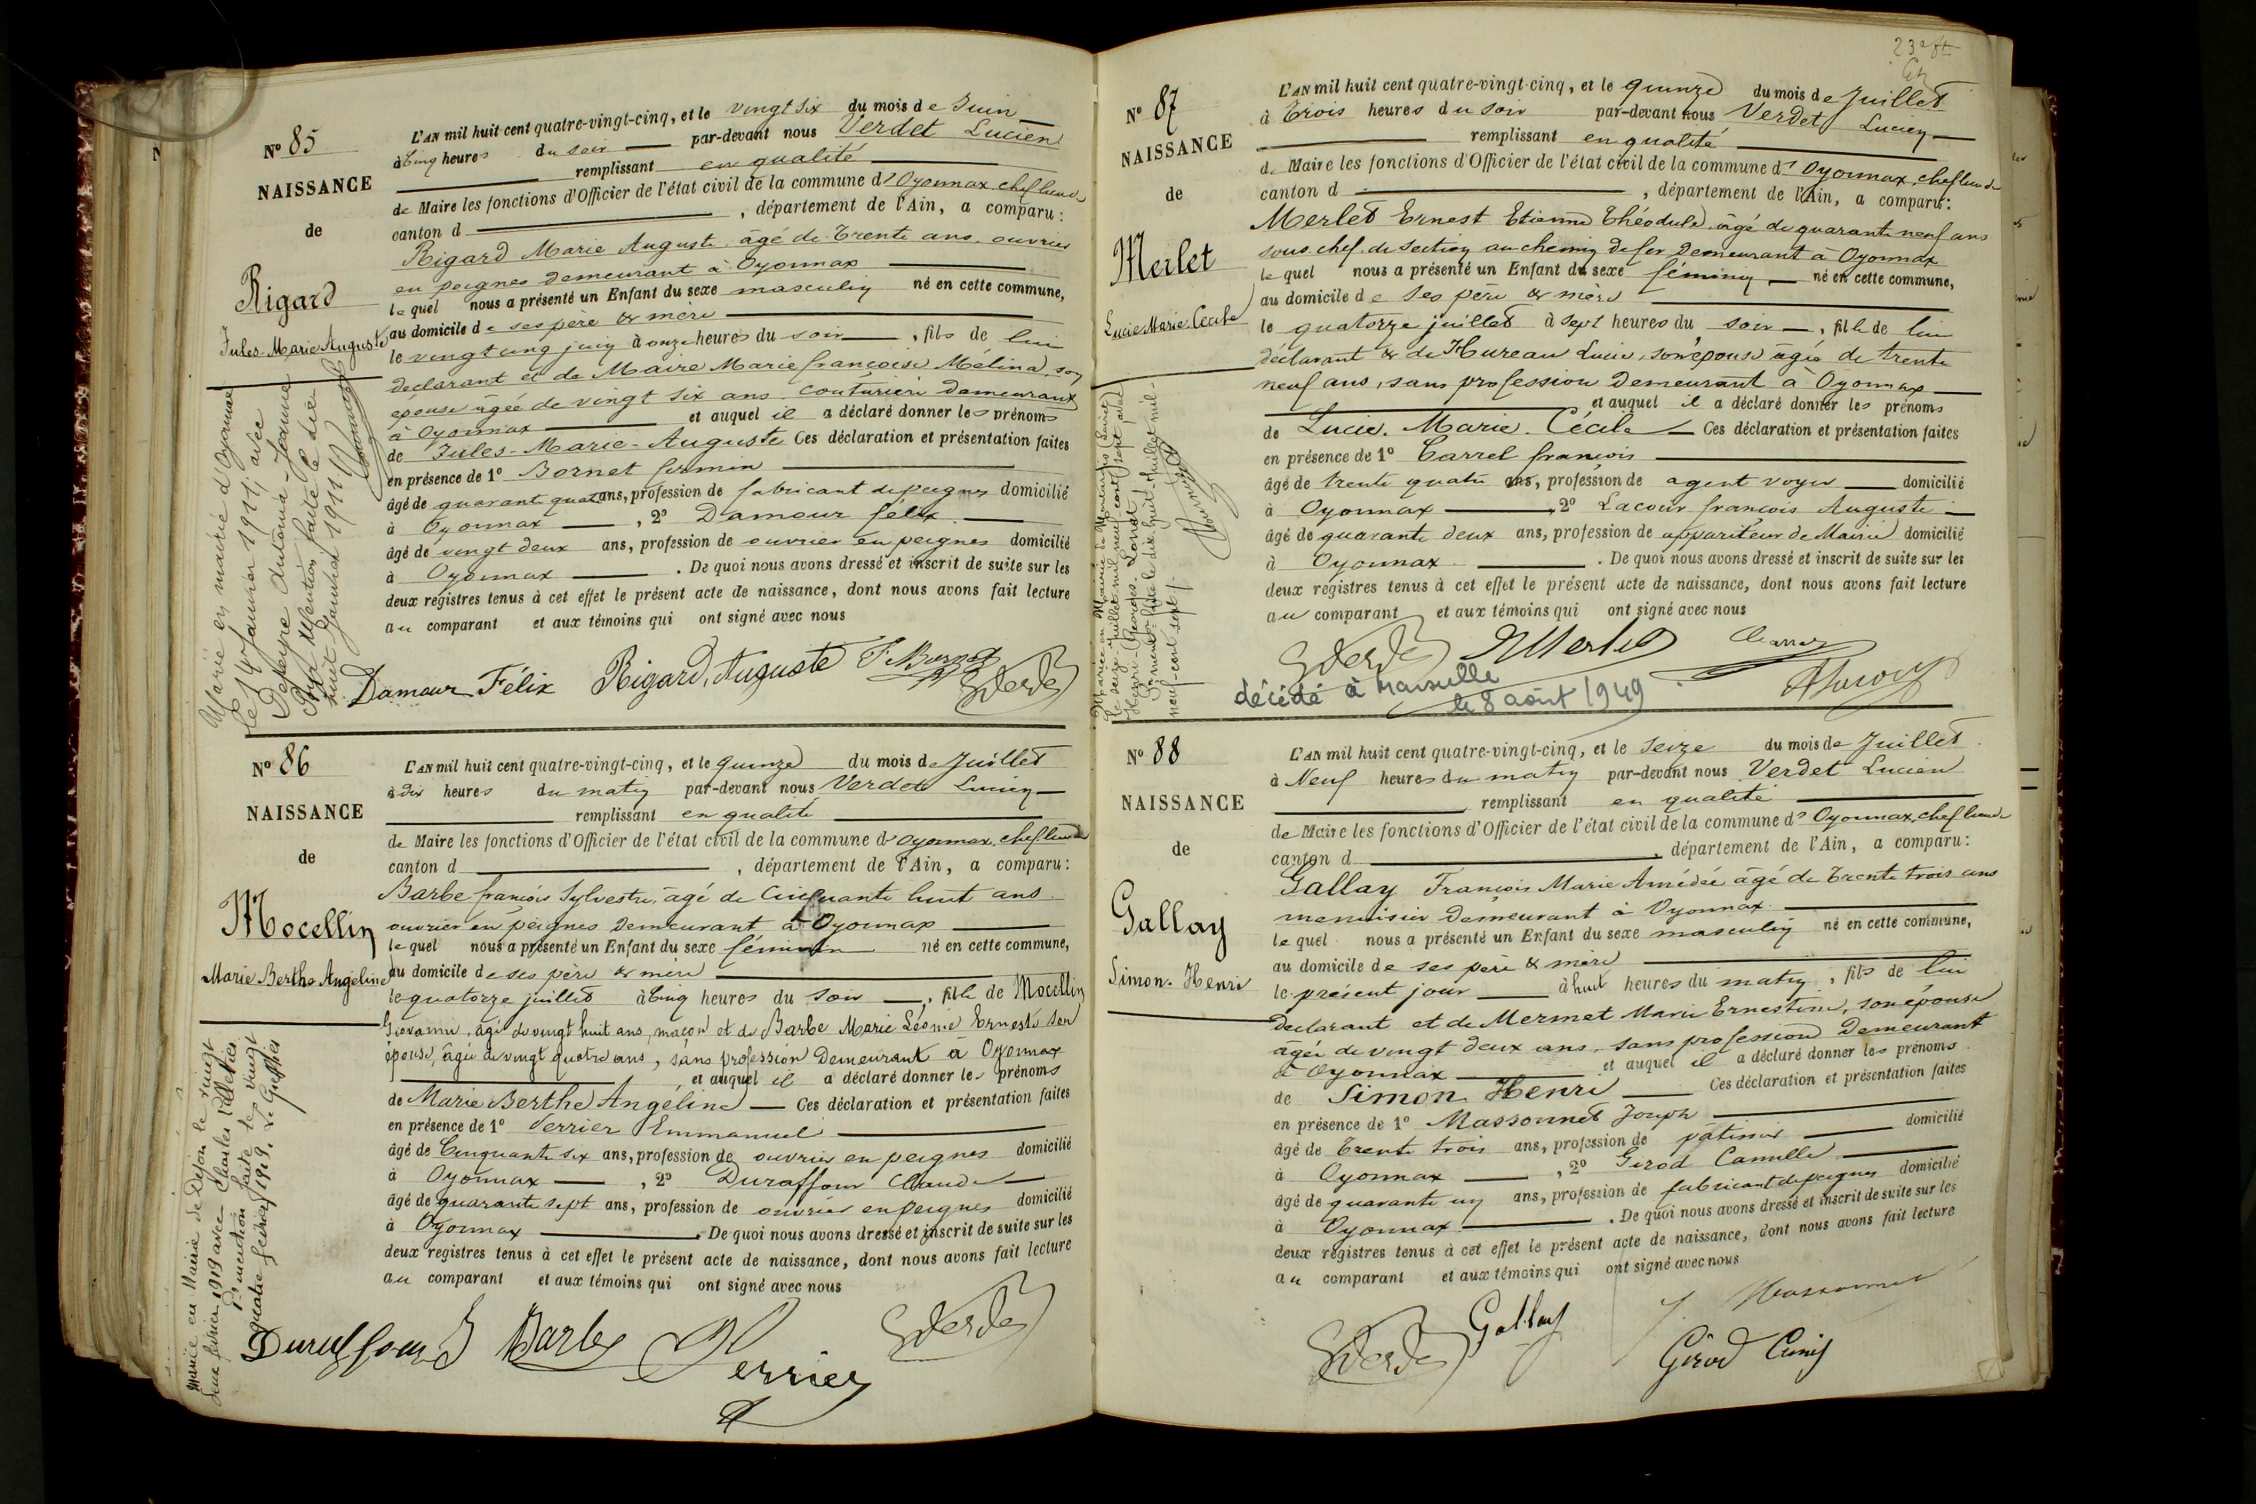 Nº 85
NAISSANCE
de
Rigard
Jules-Marie Auguste
L'AN mil huit cent quatre-vingt-cinq, et le vingt six du mois de Juin
à cinq heures du soir par-devant nous Verdet Lucien
remplissant en qualité
de Maire les fonctions d'Officier de l'état civil de la commune d'Oyonnax chef lieu de
canton d , département de l'Ain, a comparu:
Rigard Marie Auguste âgé de Trente ans ouvrier
en peignes demeurant à Oyonnax
le quel nous a présenté un Enfant du sexe masculin né en cette commune,
au domicile de ses père & mère
le vingt cinq juin à onze heures du soir , fils de lui
déclarant et de Maire Marie françoise Mélina, son
épouse âgée de vingt six ans couturière demeurant
à Oyonnax et auquel il a déclaré donner les prénoms
de Jules-Marie-Auguste Ces déclaration et présentation faites
en présence de 1º Bornet firmin
âgé de quarante quatre ans, profession de fabricant de peignes domicilié
à Oyonnax , 2º Damour félix
âgé de vingt deux ans, profession de ouvrier en peignes domicilié
à Oyonnax . De quoi nous avons dressé et inscrit de suite sur les
deux registres tenus à cet effet le présent acte de naissance, dont nous avons fait lecture
au comparant et aux témoins qui ont signé avec nous
Damour Félix Rigard, Auguste F. Bornet
Marié en mairie d'Oyonnax
le 14 Janvier 1911, avec
Antonia-Jeanne
Pour Mention faite le dix
huit Janvier 1911
Nº 86
NAISSANCE
de
Mocellin
Marie Berthe Angéline
L'AN mil huit cent quatre-vingt-cinq, et le quinze du mois de Juillet
à dix heures du matin par-devant nous Verdet Lucien
remplissant en qualité
de Maire les fonctions d'Officier de l'état civil de la commune d'Oyonnax, chef lieu de
canton d , département de l'Ain, a comparu:
Barbe françois Sylvestre, âgé de Cinquante huit ans
ouvrier en peignes demeurant à Oyonnax
le quel nous a présenté un Enfant du sexe féminin né en cette commune,
au domicile de ses père & mère
le quatorze juillet à cinq heures du soir , fille de Mocellin
Giovanni, âgé de vingt huit ans, maçon et de Barbe Marie Léonie Ernestine son
épouse, âgée de vingt quatre ans, sans profession demeurant à Oyonnax
et auquel il a déclaré donner les prénoms
de Marie Berthe Angéline Ces déclaration et présentation faites
en présence de 1º Verrier Emmanuel
âgé de Cinquante six ans, profession de ouvrier en peignes domicilié
à Oyonnax , 2º Duraffour Claude
âgé de quarante sept ans, profession de ouvrier en peignes domicilié
à Oyonnax . De quoi nous avons dressé et inscrit de suite sur les
deux registres tenus à cet effet le présent acte de naissance, dont nous avons fait lecture
au comparant et aux témoins qui ont signé avec nous
Duraffour Barbe Verrier
Mariée en Mairie de Dijon le vingt
deux février 1919 avec Charles Pelletier
Pr mention faite le vingt
quatre février 1919. Le Greffier
Nº 87
NAISSANCE
de
Merlet
Lucie Marie Cécile
L'AN mil huit cent quatre-vingt-cinq, et le quinze du mois de Juillet
à Trois heures du soir par-devant nous Verdet Lucien
remplissant en qualité
de Maire les fonctions d'Officier de l'état civil de la commune d'Oyonnax, chef lieu de
canton d , département de l'Ain, a comparu:
Merlet Ernest Etienne Théodule, âgé de quarante neuf ans
sous chef de section au chemin de fer demeurant à Oyonnax
le quel nous a présenté un Enfant du sexe féminin né en cette commune,
au domicile de ses père & mère
le quatorze juillet à sept heures du soir , fille de lui
déclarant & de Hureau Lucie, son épouse âgée de trente
neuf ans, sans profession demeurant à Oyonnax
et auquel il a déclaré donner les prénoms
de Lucie. Marie. Cécile Ces déclaration et présentation faites
en présence de 1º Carrel françois
âgé de trente quatre ans, profession de agent voyer domicilié
à Oyonnax , 2º Lacour françois Auguste
âgé de quarante deux ans, profession de appariteur de Mairie domicilié
à Oyonnax . De quoi nous avons dressé et inscrit de suite sur les
deux registres tenus à cet effet le présent acte de naissance, dont nous avons fait lecture
au comparant et aux témoins qui ont signé avec nous
Merlet
décédé à Marseille
le 8 août 1949
Mariée en Mairie de
le seize juillet mil neuf cent sept avec
Henri-Georges
mention faite le dix huit juillet mil-
neuf-cent sept
Nº 88
NAISSANCE
de
Gallay
Simon. Henri
L'AN mil huit cent quatre-vingt-cinq, et le seize du mois de Juillet
à Neuf heures du matin par-devant nous Verdet Lucien
remplissant en qualité
de Maire les fonctions d'Officier de l'état civil de la commune d'Oyonnax, chef lieu de
canton d , département de l'Ain, a comparu:
Gallay François Marie Amédée âgé de Trente trois ans
menuisier demeurant à Oyonnax
le quel nous a présenté un Enfant du sexe masculin né en cette commune,
au domicile de ses père & mère
le présent jour à huit heures du matin , fils de lui
déclarant et de Mermet Marie Ernestine, son épouse
âgée de vingt deux ans, sans profession demeurant
à Oyonnax et auquel il a déclaré donner les prénoms
de Simon Henri Ces déclaration et présentation faites
en présence de 1º Massonnet Joseph
âgé de Trente trois ans, profession de pâtissier domicilié
à Oyonnax , 2º Girod Camille
âgé de quarante un ans, profession de fabricant de peignes domicilié
à Oyonnax . De quoi nous avons dressé et inscrit de suite sur les
deux registres tenus à cet effet le présent acte de naissance, dont nous avons fait lecture
au comparant et aux témoins qui ont signé avec nous
Gallay Massonnet
Girod